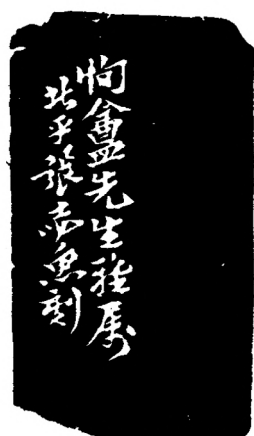 恂盦先生雅属
北平張志魚刻